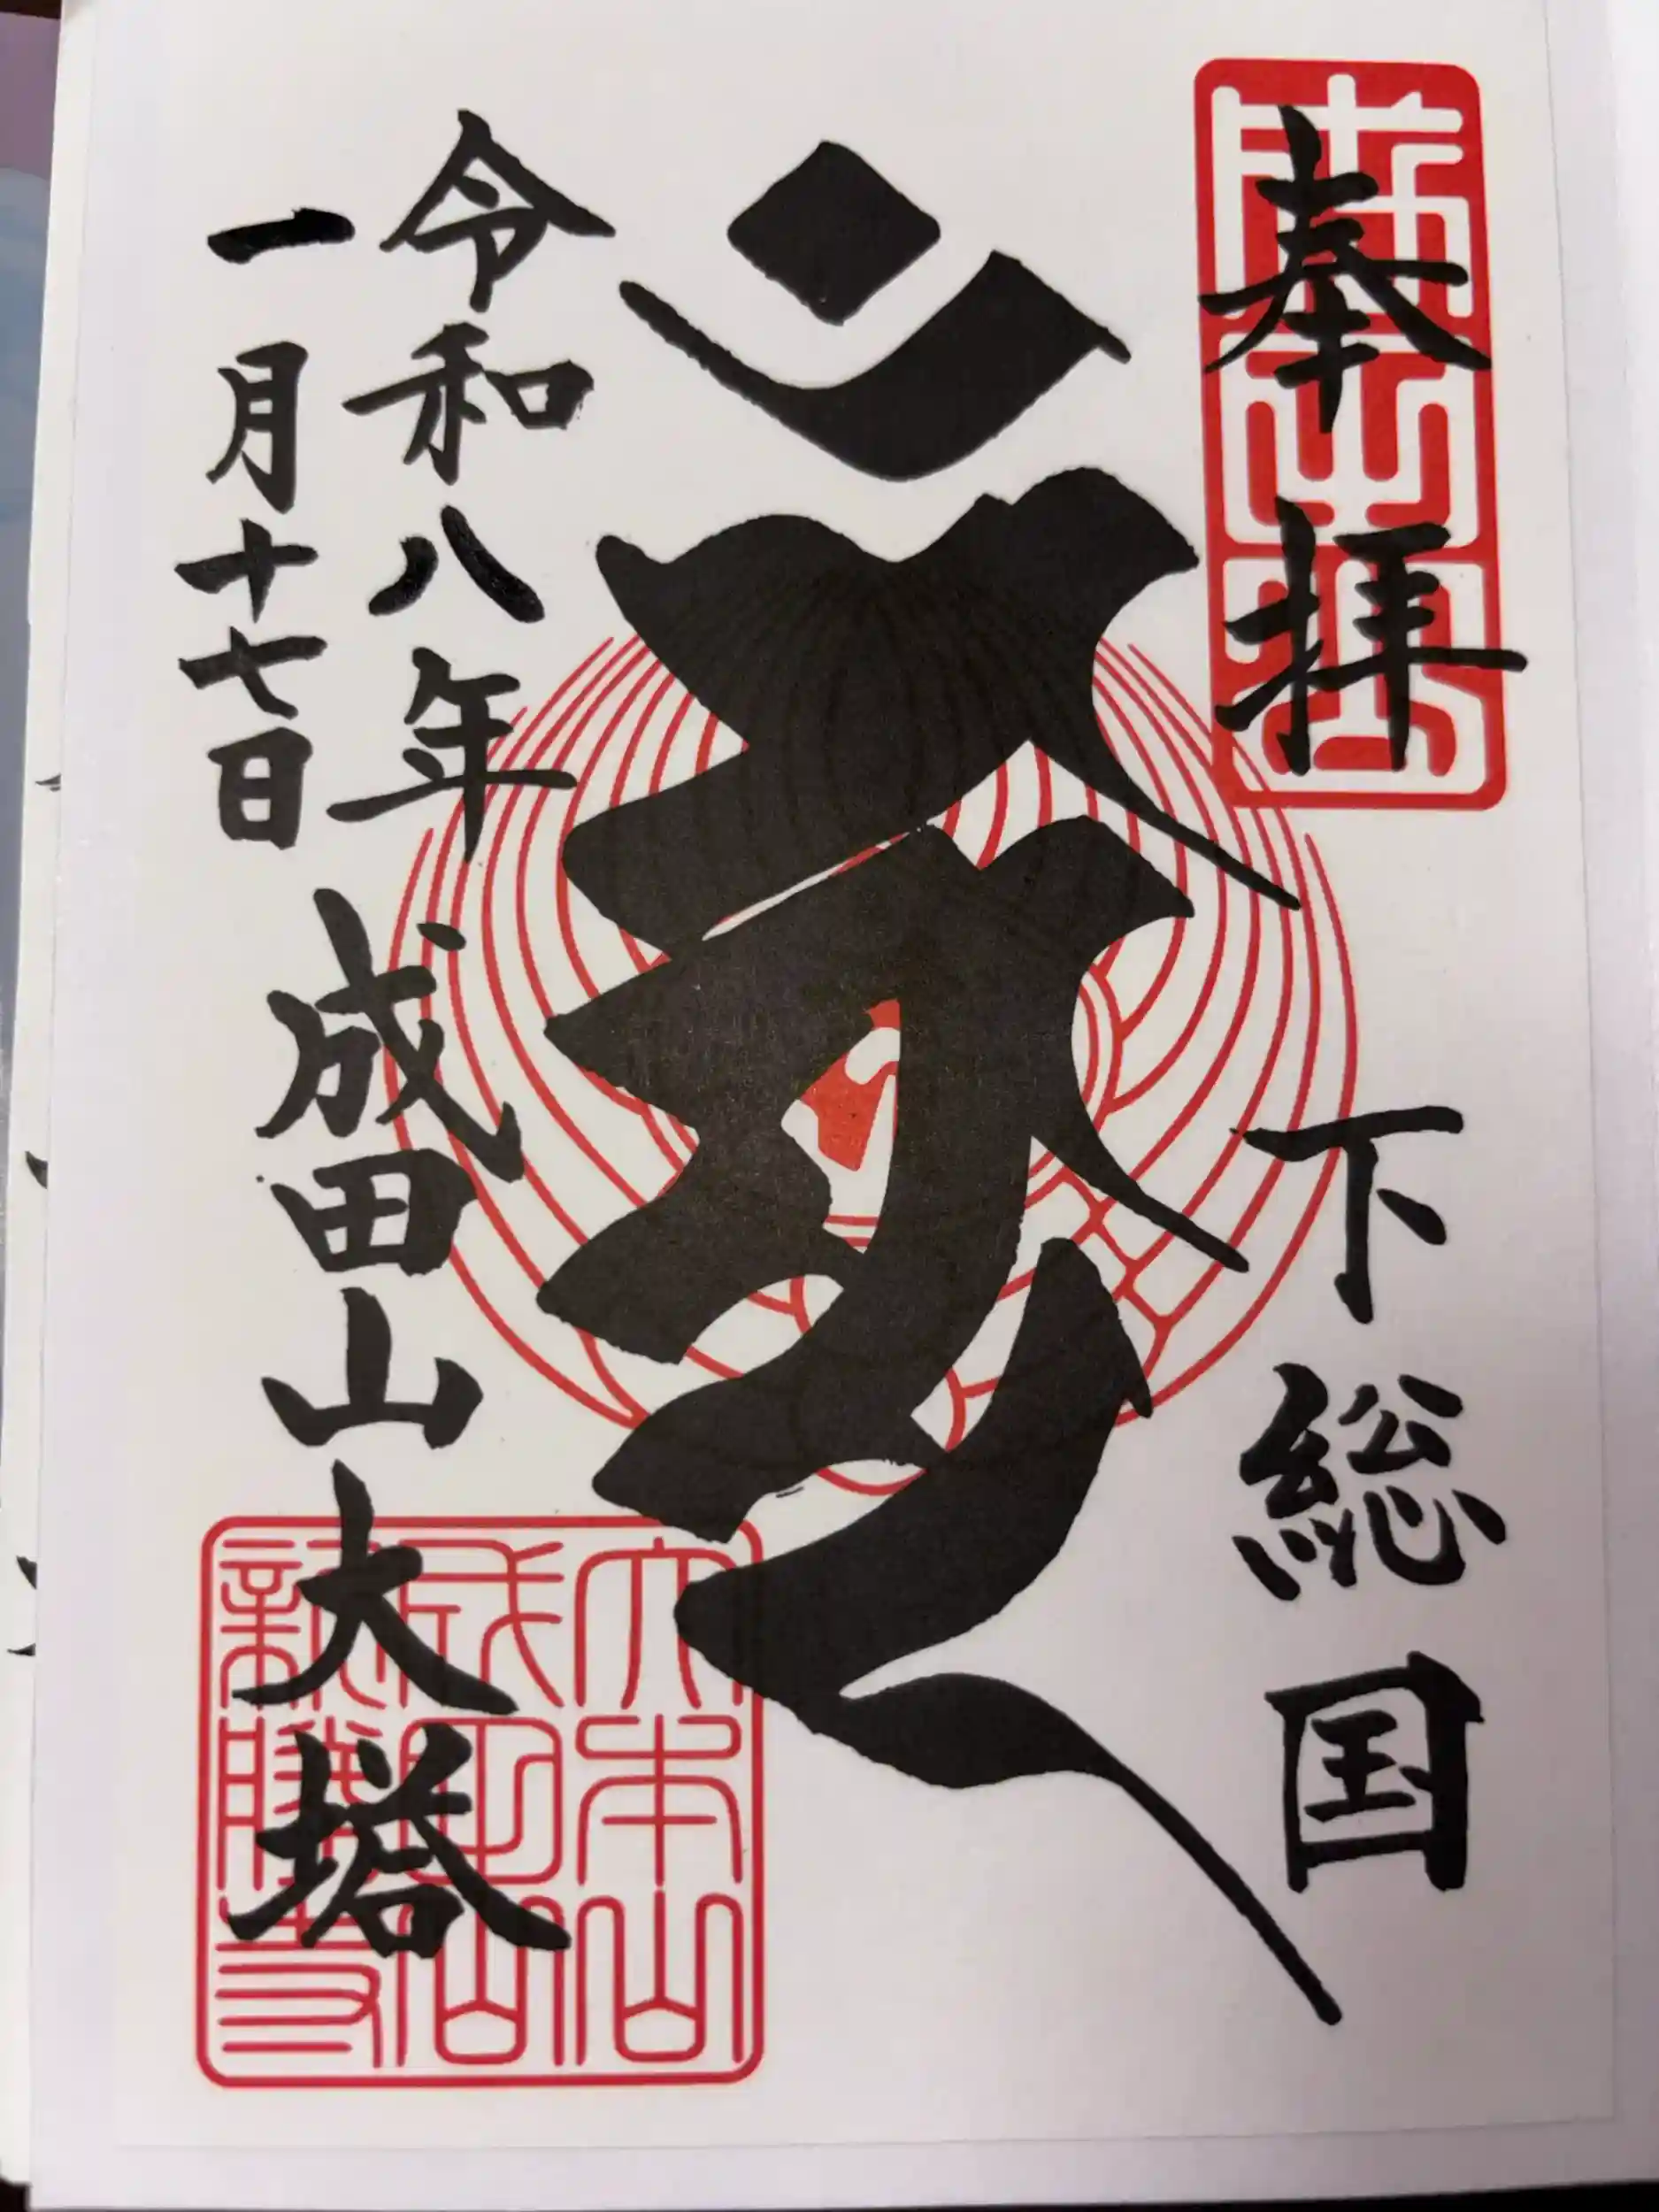 奉拝
下総国
令和八年
一月十七日
成田山大塔
大本山
成田山
新勝寺